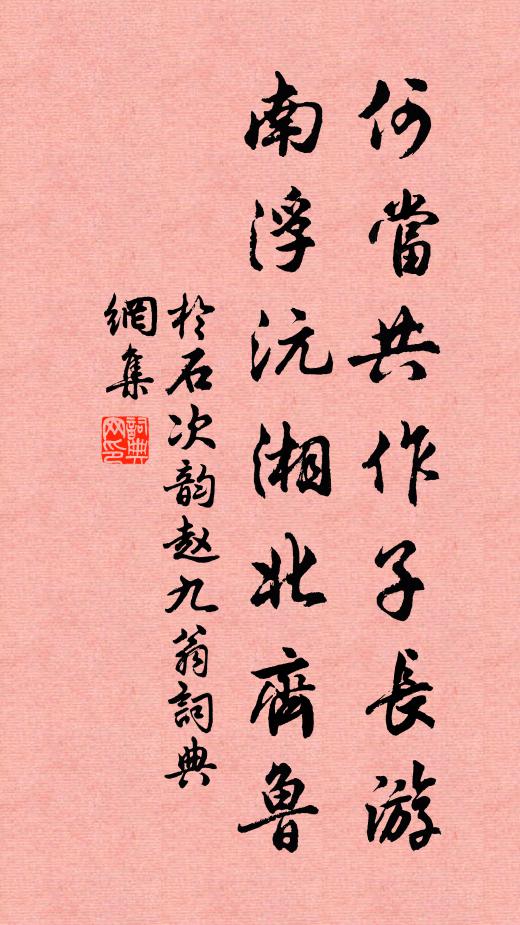 何當共作子長游
南浮沅湘北齊魯
於石次韵赵九翁詞典
網集
詞典网印